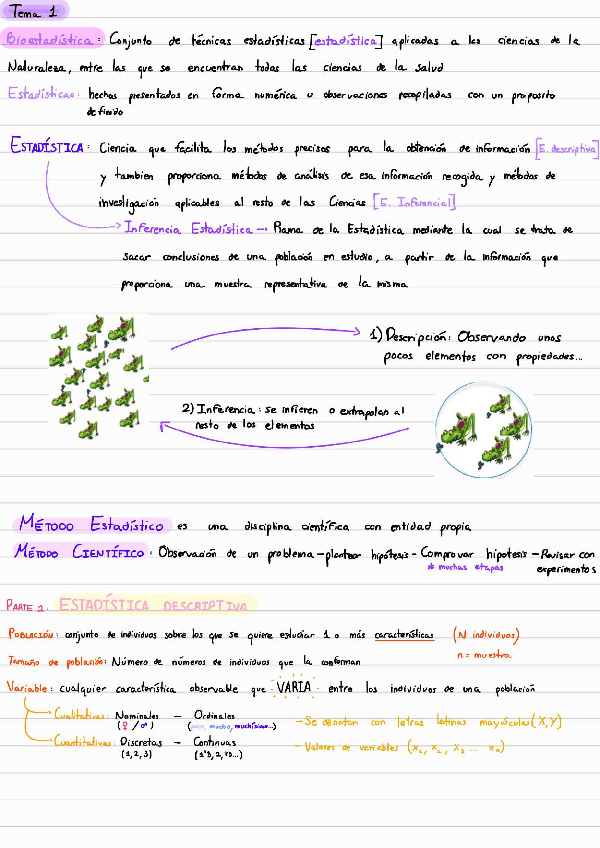 Tema 1
Bioestadística: Conjunto de técnicas estadísticas [estadística] aplicadas a las ciencias de la
Naturaleza, entre las que se encuentran todas las ciencias de la salud
Estadísticas: hechos presentados en forma numérica u observaciones recopiladas con un proposito
definido
ESTADÍSTICA: Ciencia que facilita los métodos precisos para la obtención de información [E. descriptiva]
y tambien proporciona métodos de análisis de esa información recogida y métodos de
investigación aplicables al resto de las Ciencias [E. Inferencial]
Inferencia Estadística → Rama de la Estadística mediante la cual se trata de
sacar conclusiones de una población en estudio, a partir de la información que
proporciona una muestra representativa de la misma
1) Descripción: Observando unos
pocos elementos con propiedades...
2) Inferencia: se infieren o extrapolan al
resto de los elementos
MÉTODO Estadístico es una disciplina científica con entidad propia
MÉTODO CIENTÍFICO: Observación de un problema - plantear hipótesis - Comprovar hipotesis - Revisar con
* muchas etapas
experimentos
PARTE 2. ESTADÍSTICA DESCRIPTIVA
POBLACIÓN: conjunto de individuos sobre los que se quiere estudiar 1 o más características (N individuos)
n = muestra
Tamaño de población: Número de números de individuos que la conforman
Variable: cualquier característica observable que VARIA entre los individuos de una población
Cualitativas: Nominales - Ordinales
(♀/♂) (poco, mucho, muchísimo...)
- Se denotan con letras latinas mayúsculas (X,Y)
Cuantitativas: Discretas - Continuas
(1,2,3)
- Valores de variables (x₁, x₂, x₃ ... xₙ)